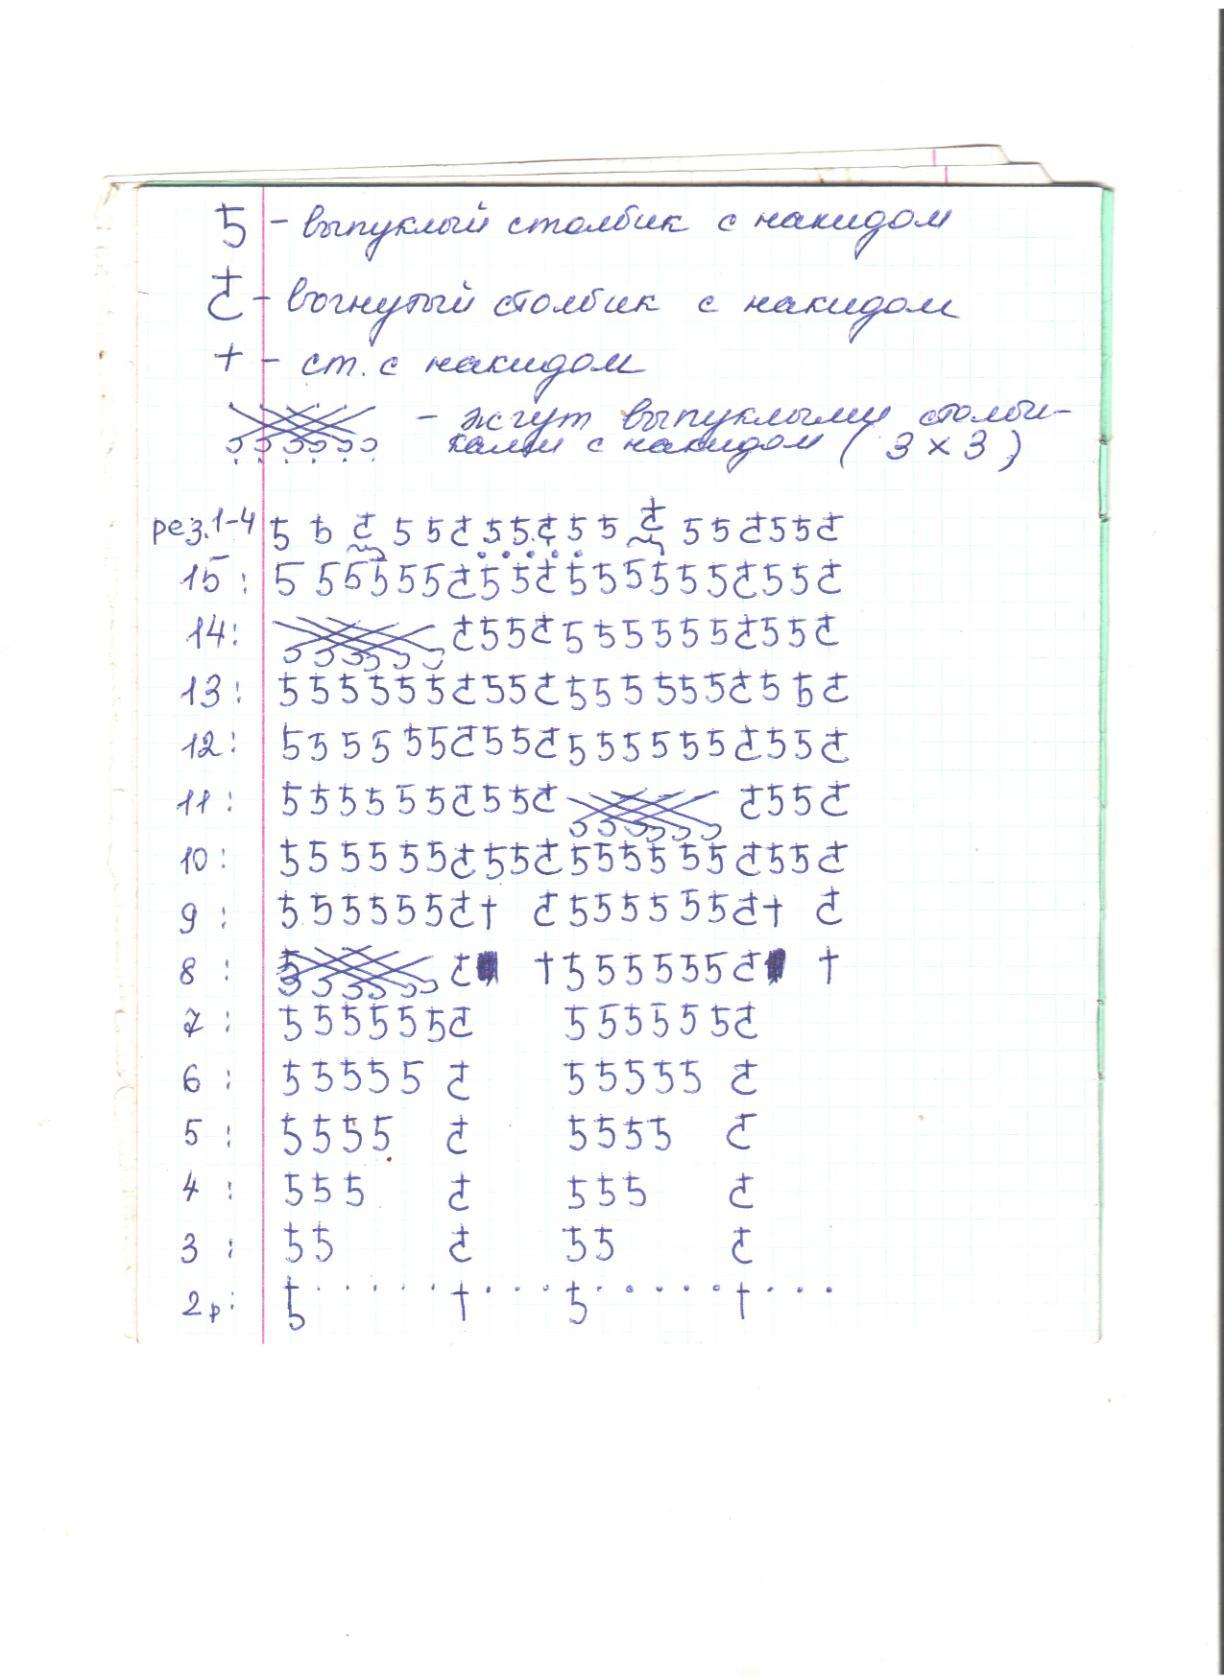 5 - выпуклый столбик с накидом
ꞇ̵ - вогнутый столбик с накидом
† - ст. с накидом
- жгут выпуклыми столби-
ками с накидом ( 3 × 3 )
рез. 1-4 5 5 ꞇ̵ 5 5 ꞇ̵ 5 5 ꞇ̵ 5 5 ꞇ̵ 5 5 ꞇ̵ 5 5 ꞇ̵
15 : 5 5 5 5 5 5 ꞇ̵ 5 5 ꞇ̵ 5 5 5 5 5 5 ꞇ̵ 5 5 ꞇ̵
14 : ꞇ̵ 5 5 ꞇ̵ 5 5 5 5 5 5 ꞇ̵ 5 5 ꞇ̵
13 : 5 5 5 5 5 5 ꞇ̵ 5 5 ꞇ̵ 5 5 5 5 5 5 ꞇ̵ 5 5 ꞇ̵
12 : 5 5 5 5 5 5 ꞇ̵ 5 5 ꞇ̵ 5 5 5 5 5 5 ꞇ̵ 5 5 ꞇ̵
11 : 5 5 5 5 5 5 ꞇ̵ 5 5 ꞇ̵ ꞇ̵ 5 5 ꞇ̵
10 : 5 5 5 5 5 5 ꞇ̵ 5 5 ꞇ̵ 5 5 5 5 5 5 ꞇ̵ 5 5 ꞇ̵
9 : 5 5 5 5 5 5 ꞇ̵ † ꞇ̵ 5 5 5 5 5 5 ꞇ̵ † ꞇ̵
8 : ꞇ̵ † 5 5 5 5 5 5 ꞇ̵ †
7 : 5 5 5 5 5 5 ꞇ̵ 5 5 5 5 5 5 ꞇ̵
6 : 5 5 5 5 5 ꞇ̵ 5 5 5 5 5 ꞇ̵
5 : 5 5 5 5 ꞇ̵ 5 5 5 5 ꞇ̵
4 : 5 5 5 ꞇ̵ 5 5 5 ꞇ̵
3 : 5 5 ꞇ̵ 5 5 ꞇ̵
2р : 5 . . . . . † . . . 5 . . . . . † . . .